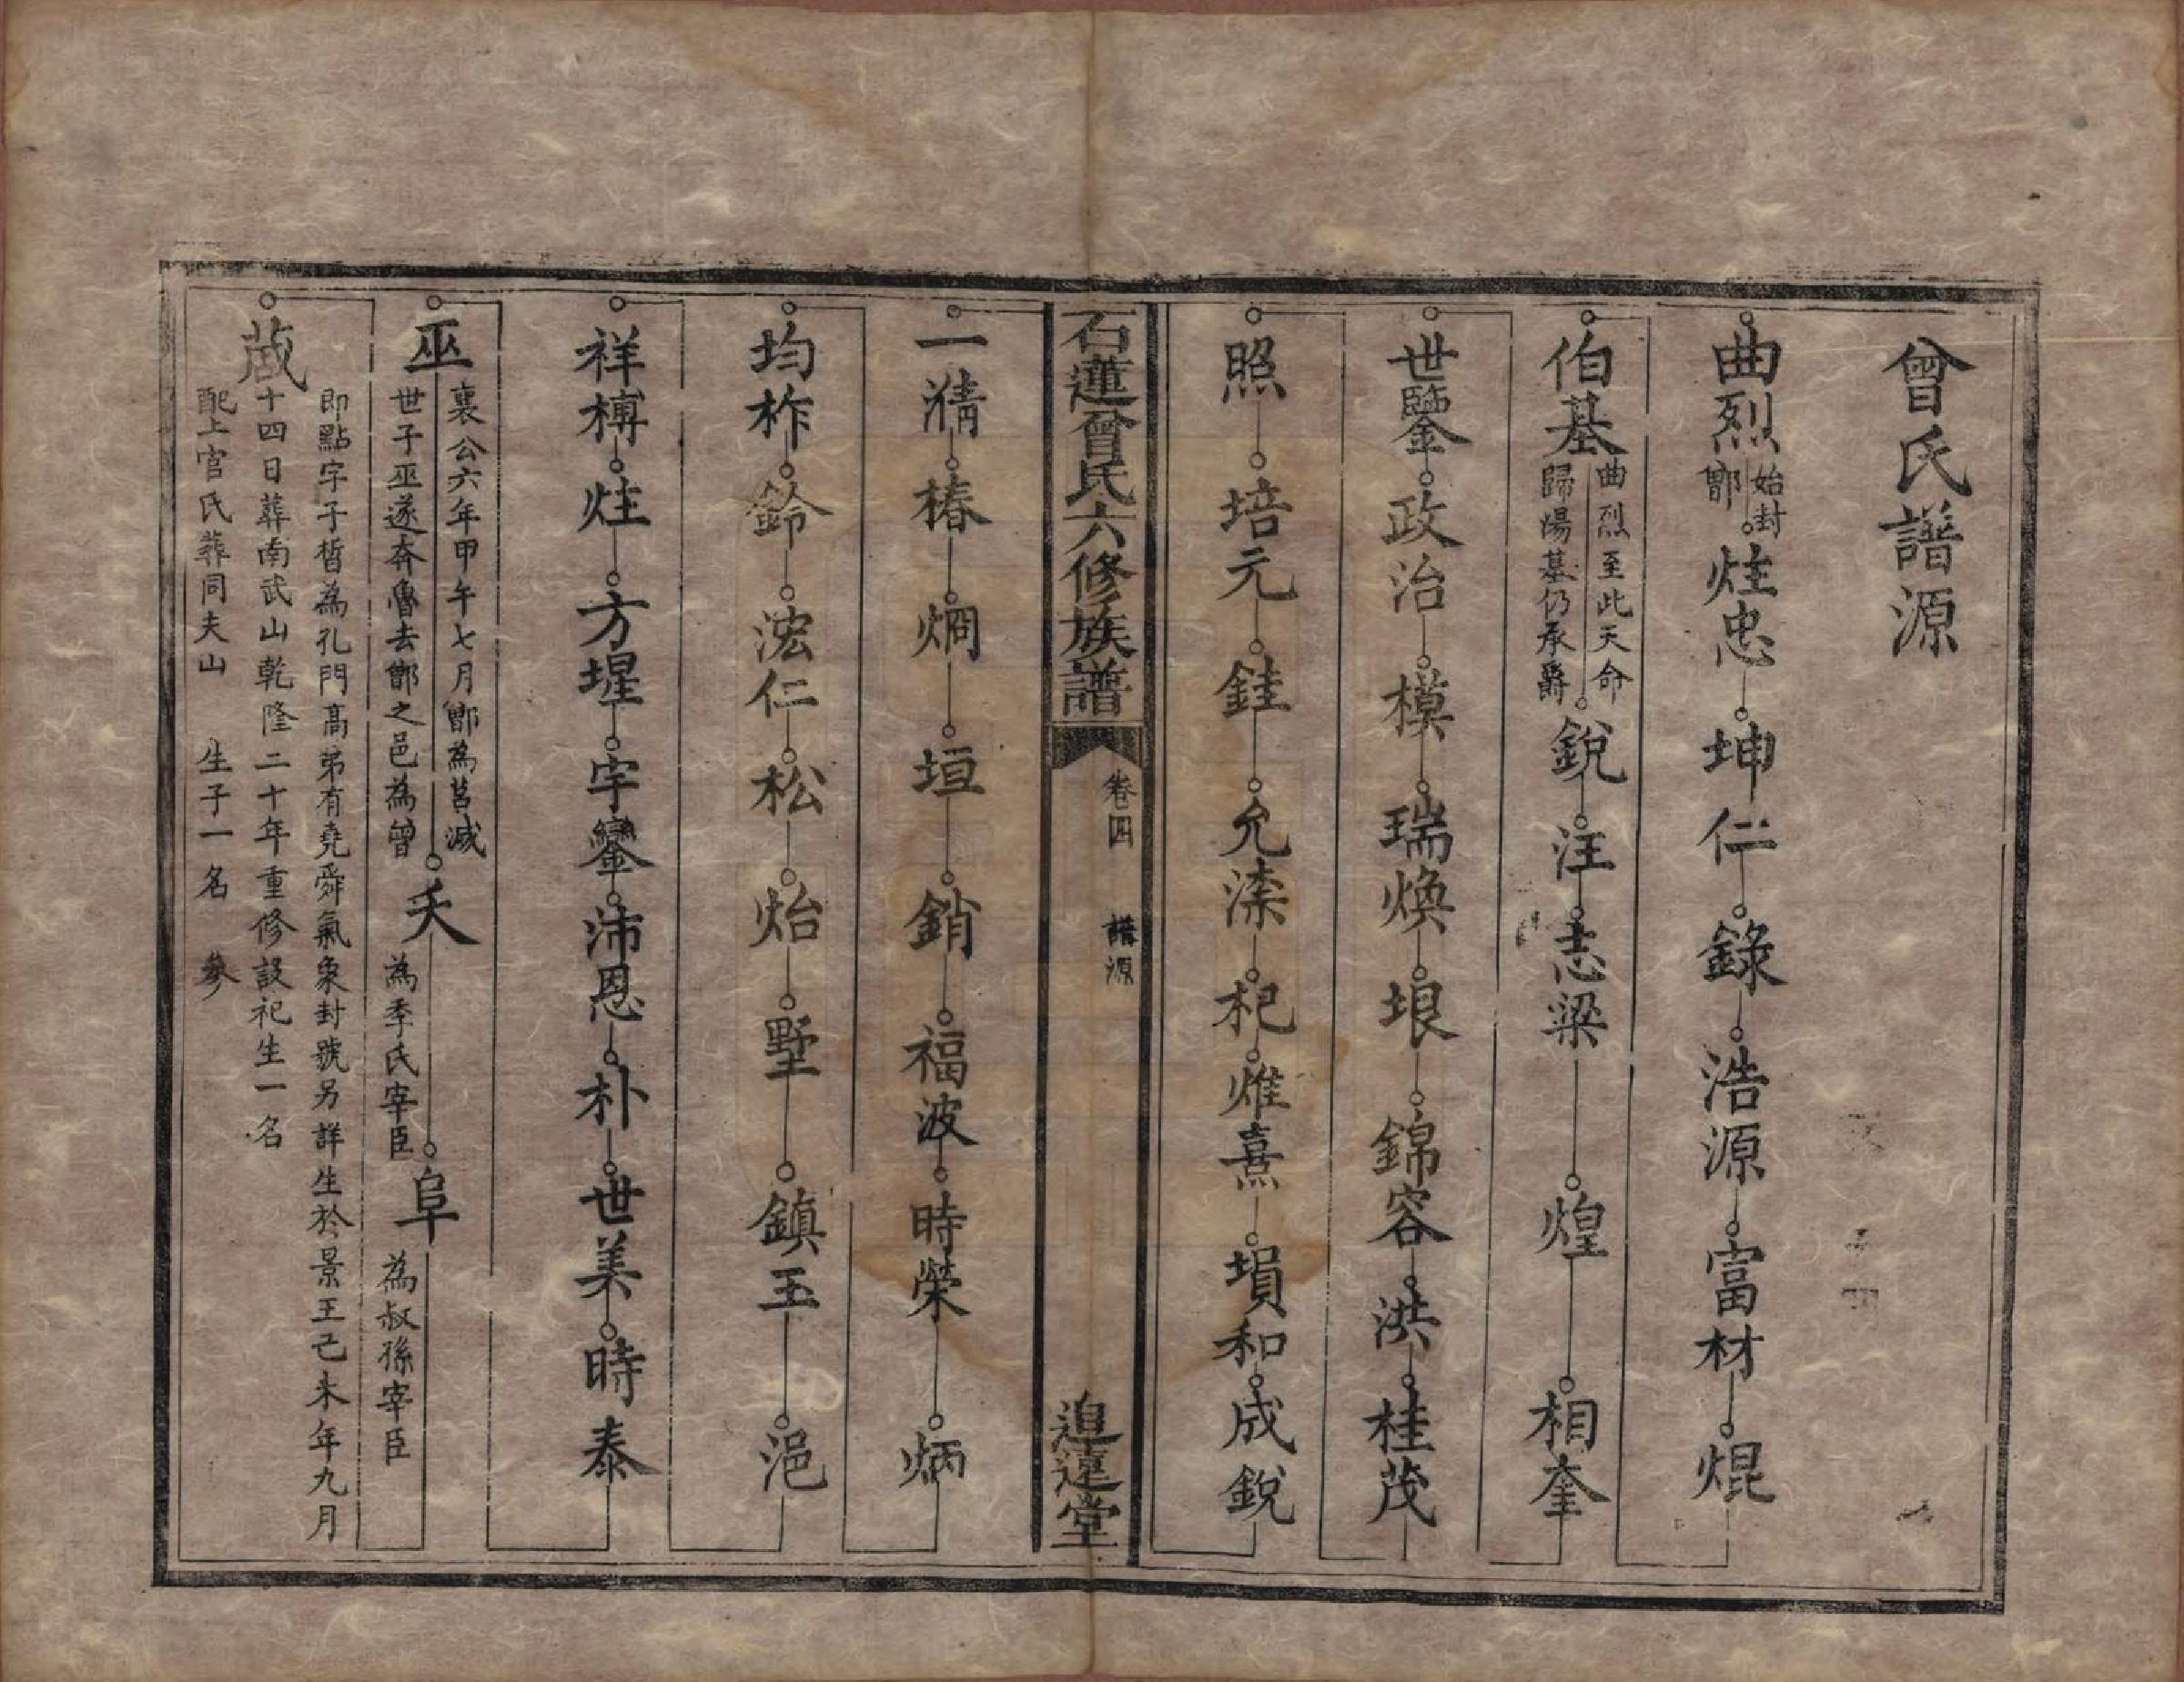 曾氏譜源
曲烈 始封鄫 炷忠 坤仁 錄 浩源 富材 焜
伯基 曲烈至此天命歸湯基仍承爵 銳 汪 志梁 煌 相奎
世鑒 政治 模 瑞煥 垠 錦容 洪 桂茂
照 培元 銈 允溙 杞 炡熹 塤和 成銳
石蓮曾氏六修族譜 卷四 譜源 追遠堂
一𤄃 椿 烱 垣 銷 福波 時榮 炳
均柞 鈴 浤仁 松 炲 墅 鎮玉 浥
祥榑 炷 方墭 宇鑾 沛恩 朴 世美 時泰
巫 襄公六年甲午七月鄫為莒滅
世子巫遂奔魯去鄫之邑為曾 夭 為季氏宰臣 阜 為叔孫宰臣
蒧 即點字子皙為孔門高弟有堯舜氣象封號另詳生於景王己未年九月
十四日葬南武山乾隆二十年重修設祀生一名
配上官氏葬同夫山 生子一名 參